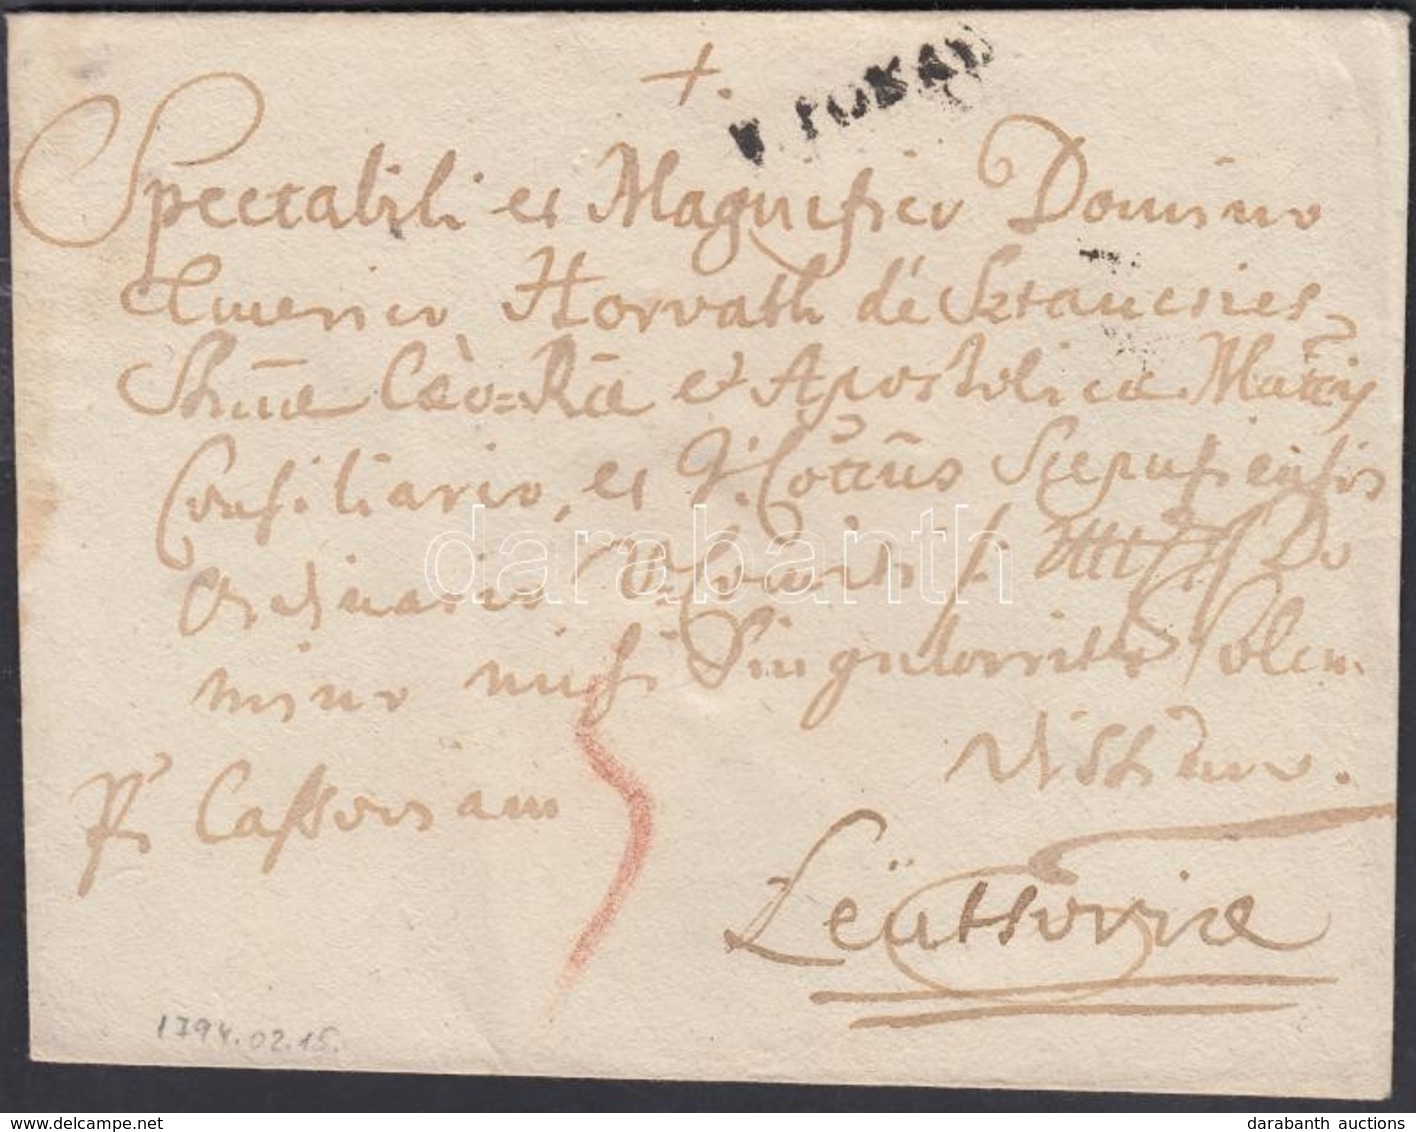 V. TOKAY
+.
Spectabili et Magnifico Domino
Emerico Horvath dé Sztancsics
Sacræ Cæo=Ræ et Apostolicæ Mattis
Consiliario, et I. Cottus Scepusiensis
Ordinario V=Comiti p. Do
mino mihi Singulariter Colen
distimo.
pr Cassoviam
Leütsoviæ
1794.02.15.
darabanth
delcampe.net
darabanth auctions